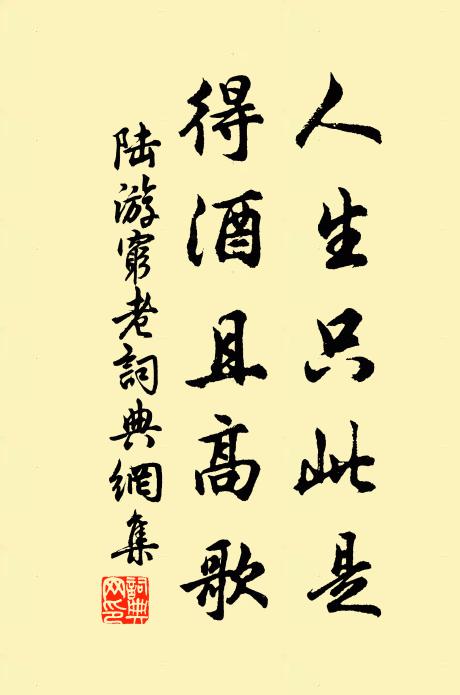 人生只此是
得酒且高歌
陆游窮老詞典網集
詞典網印